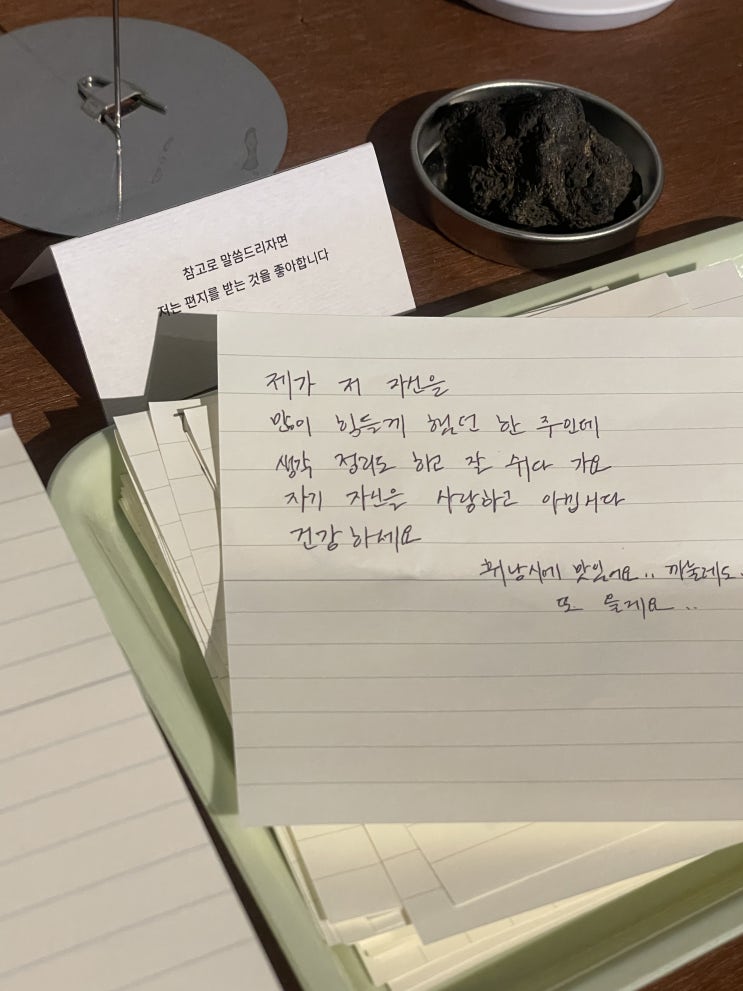 참고로 말씀드리자면
저는 편지를 받는 것을 좋아합니다
제가 저 자신을
많이 힘들게 했던 한 주인데
생각 정리도 하고 잘 쉬다 가요
자기 자신을 사랑하고 아낍시다
건강하세요
휘낭시에 맛있어요.. 까눌레도.
또 올게요..